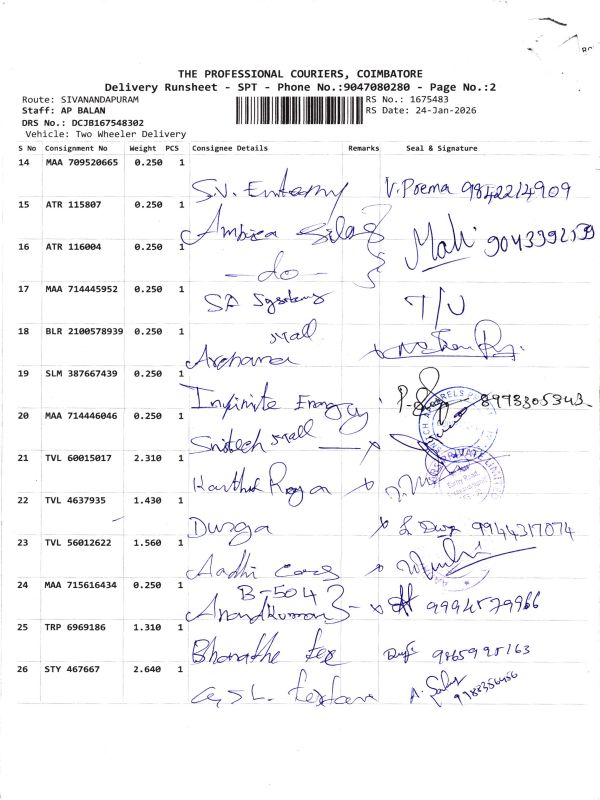 THE PROFESSIONAL COURIERS, COIMBATORE
Delivery Runsheet - SPT - Phone No.:9047080280 - Page No.:2
Route: SIVANANDAPURAM RS No.: 1675483
Staff: AP BALAN RS Date: 24-Jan-2026
DRS No.: DCJB167548302
Vehicle: Two Wheeler Delivery
S No Consignment No Weight PCS Consignee Details Remarks Seal & Signature
14 MAA 709520665 0.250 1
S.V. V. Poema 9842214909
15 ATR 115807 0.250 1
Ambica Mali 9043392599
16 ATR 116004 0.250 1
-do-
17 MAA 714445952 0.250 1
SA Systems T/U
18 BLR 2100578939 0.250 1
Mall
Archana
19 SLM 387667439 0.250 1
Infinite Energy 8998305343
20 MAA 714446046 0.250 1
Snitech Mall
21 TVL 60015017 2.310 1
Karthik Raja
22 TVL 4637935 1.430 1
Durga 9944317074
23 TVL 56012622 1.560 1
Aadhi Cars
24 MAA 715616434 0.250 1
B-504
Anandkumar 9994579966
25 TRP 6969186 1.310 1
Bharathe Tex 9865995163
26 STY 467667 2.640 1